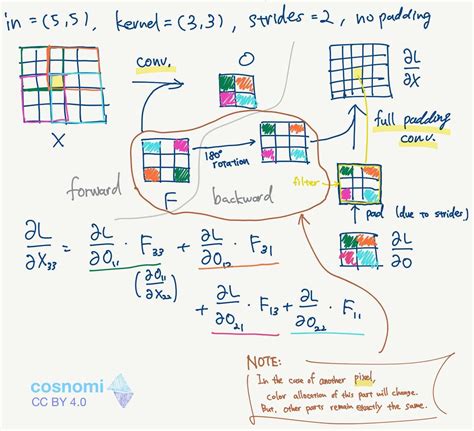 in = (5,5), kernel = (3,3), strides = 2, no padding
conv.
O
∂L/∂X
X
full padding conv.
180° rotation
forward
F
backward
filter
pad (due to strides)
∂L/∂O
∂L/∂X₃₃ = ∂L/∂O₁₁ · F₃₃ + ∂L/∂O₁₂ · F₃₁
(∂O₁₁/∂X₂₂)
+ ∂L/∂O₂₁ · F₁₃ + ∂L/∂O₂₂ · F₁₁
NOTE:
In the case of another pixel,
color allocation of this part will change.
But, other parts remain exactly the same.
cosnomi
CC BY 4.0